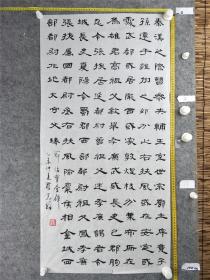 秦漢之際曹參夾輔王室世宗廓土斥竟子
孫遷于雍州之郊分止右扶風或在安定或
處武都或居隴西或家敦煌枝分葉布所在
為雄君高祖父敏舉孝廉武威長史巴郡朐
忍令張掖居延都尉曾祖父述孝廉謁者金
城長史夏陽令蜀郡西部都尉祖父鳳孝廉
張掖屬國都尉丞右扶風隃麋侯相金城西
部都尉北地太守父琫